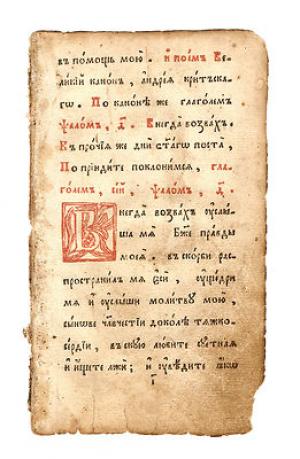 въ помощь мою̀. И поем Ве-
ликїй канон, андреа критъска-
гѡ. По канонѣ же глаголем
ѱалом, д҃. Внегда возвах.
Въ прочїѧ же дни ст҃агѡ поста,
По прїидите поклонимсѧ, гла-
голем, сїй, ѱалом, д҃.
Внегда возвах услы-
ша мѧ Бж҃е правды
моеѧ. въ скорби рас-
пространил мѧ еси, ущедри
мѧ и услыши молитву мою,
сынове чл҃вчестїи доколѣ тѧжко-
сердїи, въскую любите суетнаѧ
и ищете лжи; и увѣдите ꙗкѡ